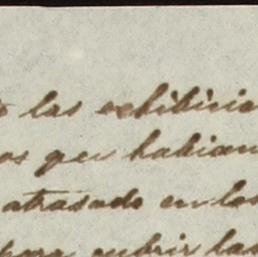 las exhibicia
os que habian
atrasado en los
para cubrir las